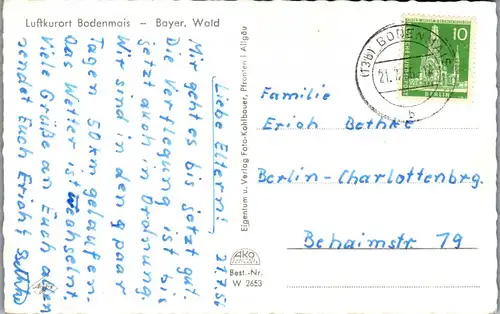 Luftkurort Bodenmais – Bayer. Wald
21.7.56
Liebe Eltern!
Mir geht es bis jetzt gut.
Die Verpflegung ist bis
jetzt auch in Ordnung.
Wir sind in den paar
Tagen 50 km gelaufen.
Das Wetter ist wechselnt.
Viele Grüße an Euch allen
sendet Euch Erich Bethke
Eigentum u. Verlag Foto-Kohlbauer, Pfronten i. Allgäu
AKO
Best.-Nr.
W 2653
(13b) BODENMAIS
b
10
BERLIN
Familie
Erich Bethke
Berlin-Charlottenbrg.
Behaimstr 19